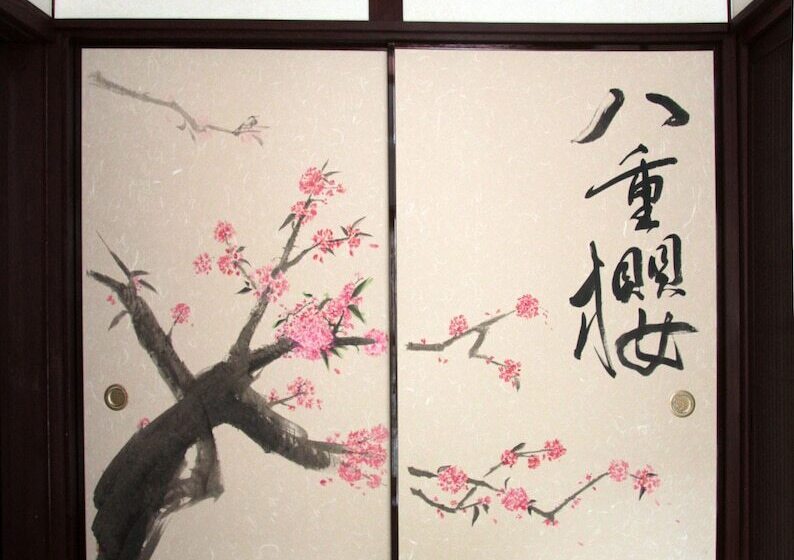 八重櫻